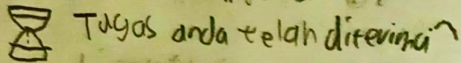 Tugas anda telah diterima